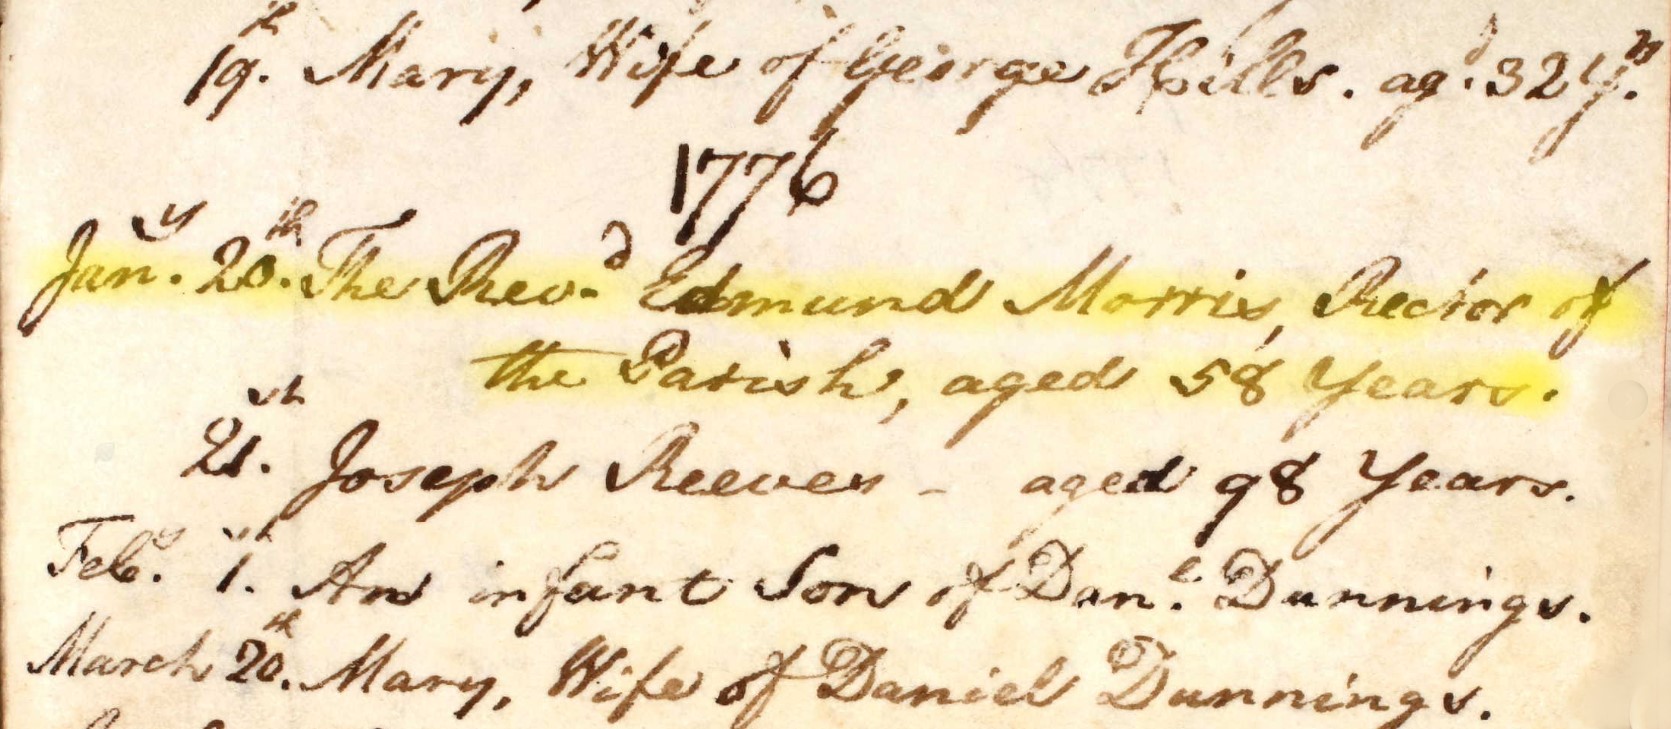 19.th Mary, Wife of George Hills. ag.d 32 y.rs
1776
Jan.y 20.th The Rev.d Edmund Morris, Rector of
the Parish, aged 58 Years.
21.st Joseph Reeves - aged 98 Years.
Feb.y 1.st An infant Son of Dan.l Dunnings.
March 20.th Mary, Wife of Daniel Dunnings.